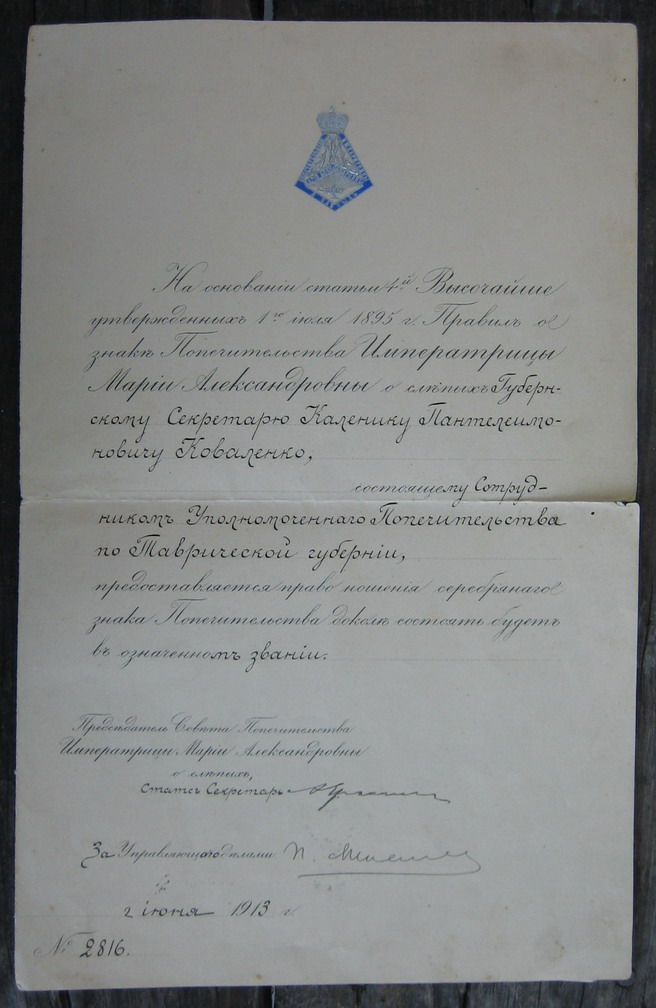 На основаніи статьи 4ой Высочайше
утвержденныхъ 1го іюля 1895 г. Правилъ о
знакѣ Попечительства Императрицы
Маріи Александровны о слѣпыхъ Губерн-
скому Секретарю Каленику Пантелеимо-
новичу Коваленко,
состоящему Сотруд-
никомъ Уполномоченнаго Попечительства
по Таврической губерніи,
предоставляется право ношенія серебрянаго
знака Попечительства доколѣ состоять будетъ
въ означенномъ званіи.
Предсѣдатель Совѣта Попечительства
Императрицы Маріи Александровны
о слѣпыхъ,
Статсъ Секретарь
За Управляющаго дѣлами П.
2 іюня 1913 г
№ 2816.